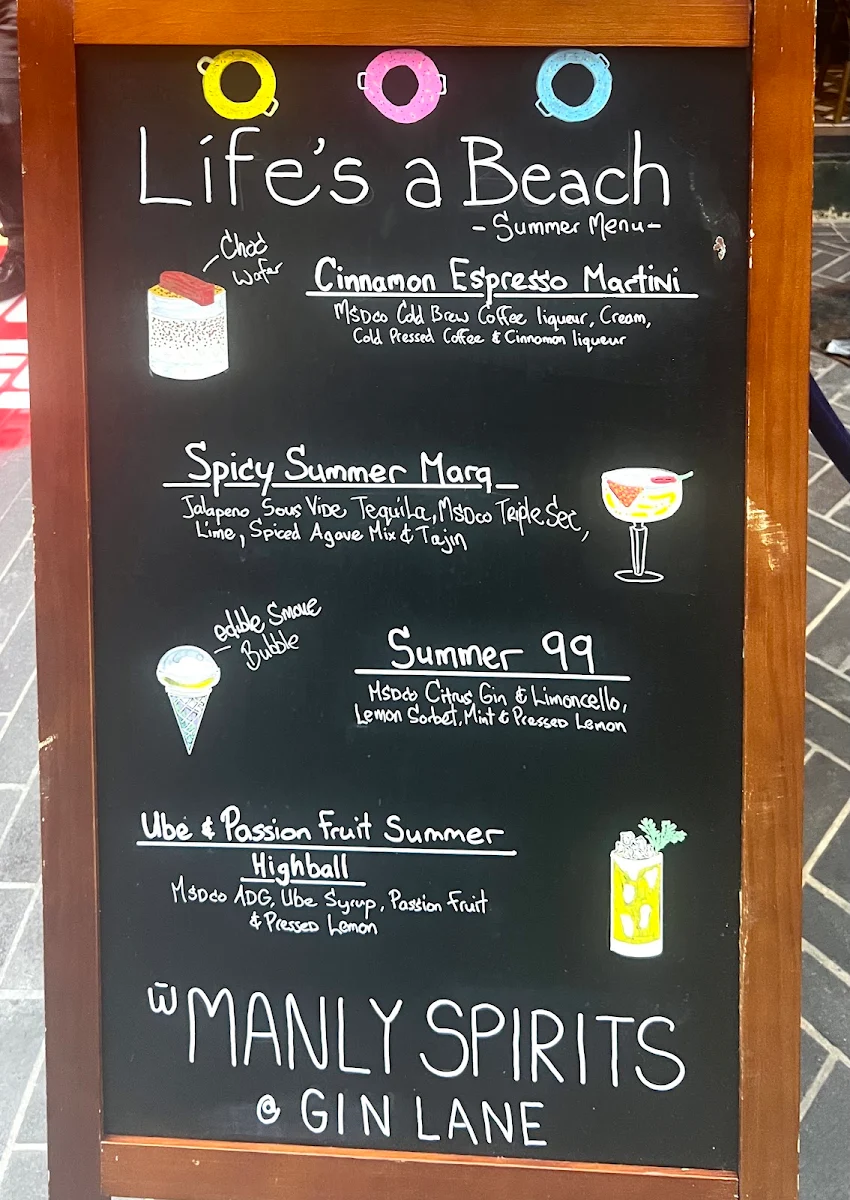 Life's a Beach
-Summer Menu-
Choc
Wafer
Cinnamon Espresso Martini
MSDCo Cold Brew Coffee liqueur, Cream,
Cold Pressed Coffee & Cinnamon liqueur
Spicy Summer Marg
Jalapeno Sous Vide, Tequila, MSDCo Triple Sec,
Lime, Spiced Agave Mix & Tajin
edible Smoke
Bubble
Summer 99
MSDCo Citrus Gin & Limoncello,
Lemon Sorbet, Mint & Pressed Lemon
Ube & Passion Fruit Summer
Highball
MSDCo ADG, Ube Syrup, Passion Fruit
& Pressed Lemon
w̄ MANLY SPIRITS
@ GIN LANE